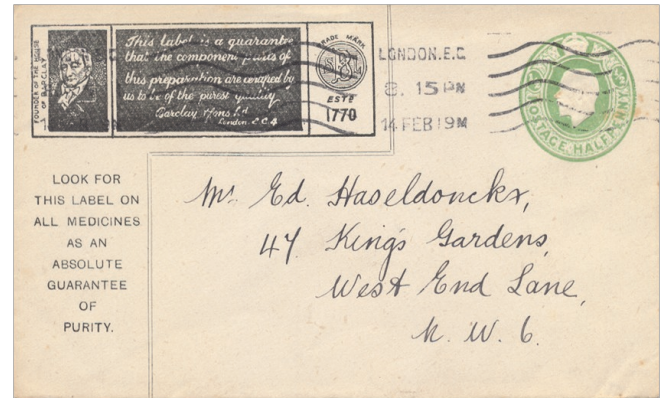 FOUNDER OF THE HOUSE
OF BARCLAY
This label is a guarantee
that the component parts of
this preparation are certified by
us to be of the purest quality
Barclay & Sons. Ld
London. E.C.4
TRADE MARK
ESTD
1770
LONDON.E.C
8. 15 PM
14 FEB 19
POSTAGE HALFPENNY
LOOK FOR
THIS LABEL ON
ALL MEDICINES
AS AN
ABSOLUTE
GUARANTEE
OF
PURITY.
Mr. Ed. Haseldonckx,
47 King's Gardens
West End Lane,
N. W. 6.